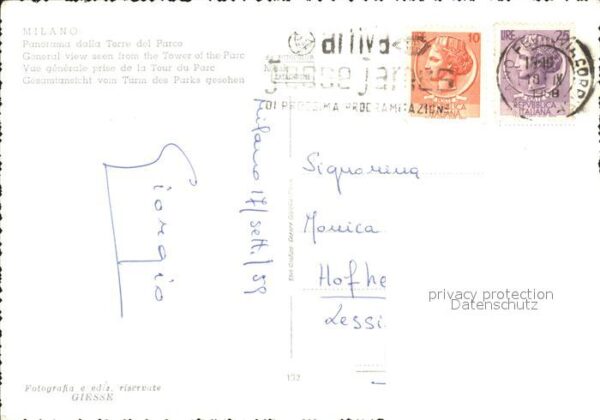 MILANO
Panorama dalla Torre del Parco
General view seen from the Tower of the Parc
Vue générale prise de la Tour du Parc
Gesamtansicht vom Turm des Parks gesehen
arriva
jesse james
DI PROSSIMA PROGRAMMAZIONE
10
LIRE 25
REPUBBLICA ITALIANA
REPUBBLICA ITALIANA
Milano 17/sett./59
Giorgio
Signorina
Monica
Hofhe
Lessi
privacy protection
Datenschutz
152
Fotografia e ediz. riservate
GIESSE